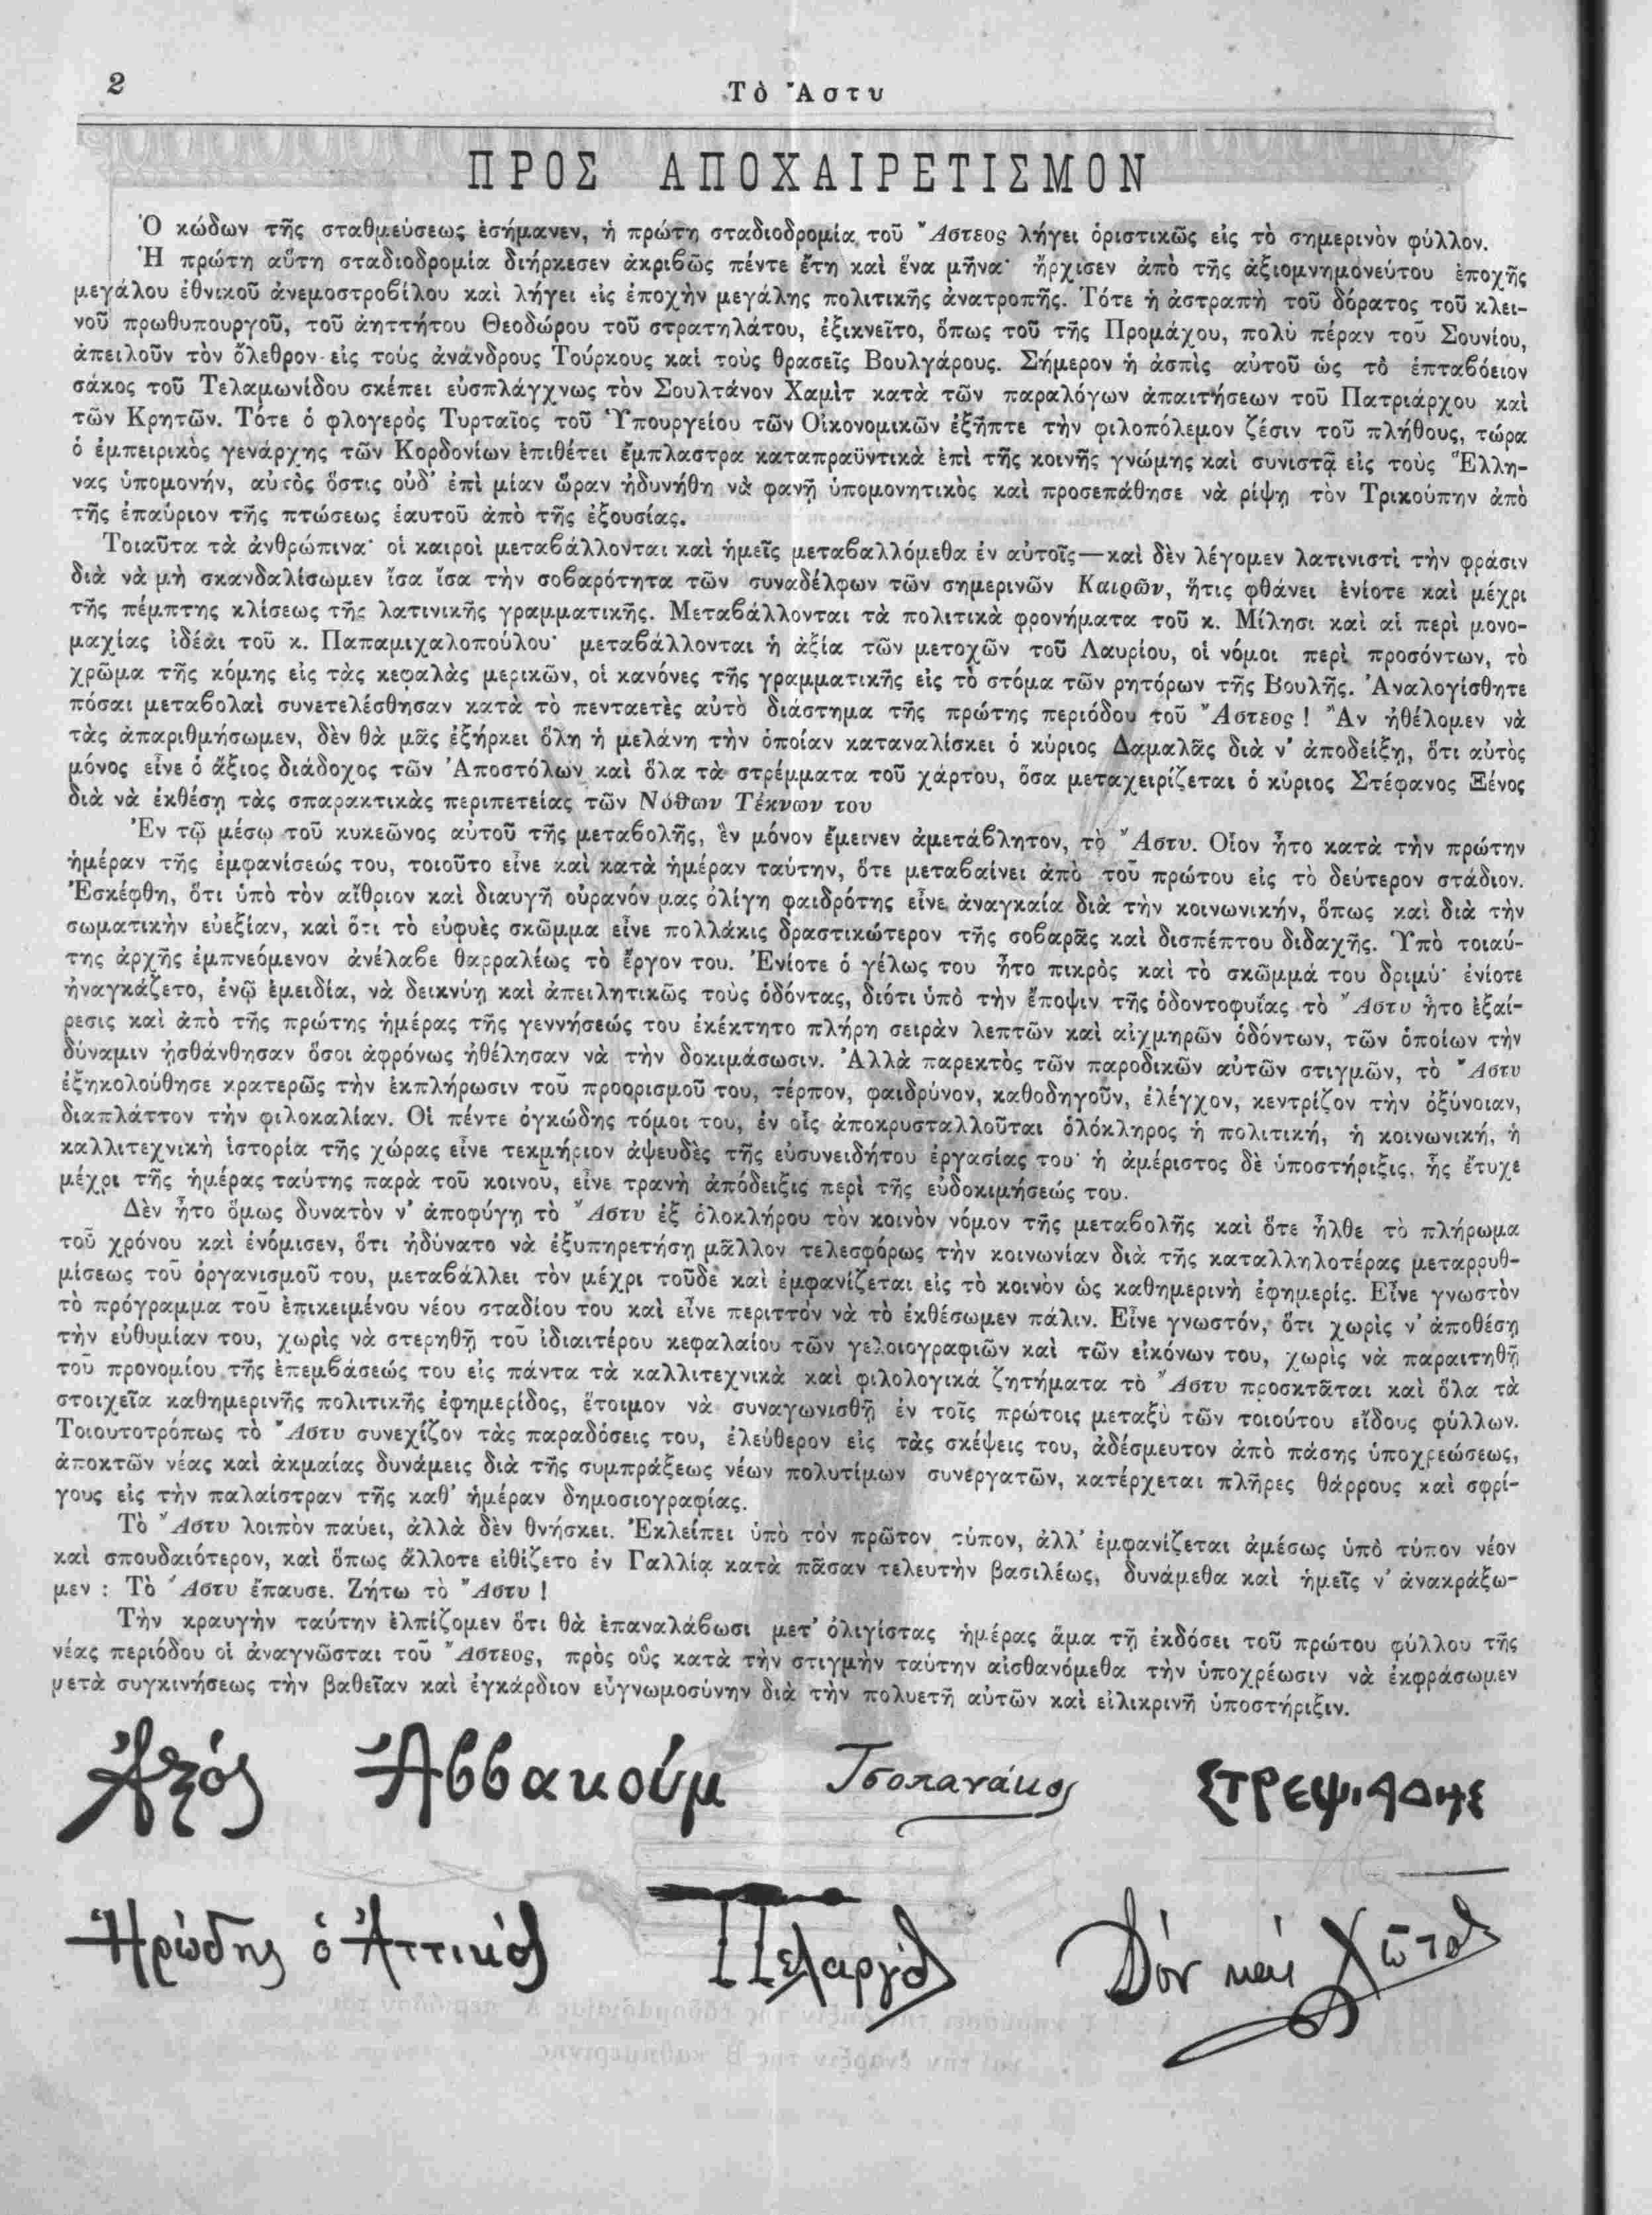 2
Τὸ Ἄστυ
ΠΡΟΣ ΑΠΟΧΑΙΡΕΤΙΣΜΟΝ
Ὁ κώδων τῆς σταθμεύσεως ἐσήμανεν, ἡ πρώτη σταδιοδρομία τοῦ Ἄστεος λήγει ὁριστικῶς εἰς τὸ σημερινὸν φύλλον.
Ἡ πρώτη αὕτη σταδιοδρομία διήρκεσεν ἀκριβῶς πέντε ἔτη καὶ ἕνα μῆνα· ἤρχισεν ἀπὸ τῆς ἀξιομνημονεύτου ἐποχῆς
μεγάλου ἐθνικοῦ ἀνεμοστροβίλου καὶ λήγει εἰς ἐποχὴν μεγάλης πολιτικῆς ἀνατροπῆς. Τότε ἡ ἀστραπὴ τοῦ δόρατος τοῦ κλει-
νοῦ πρωθυπουργοῦ, τοῦ ἀηττήτου Θεοδώρου τοῦ στρατηλάτου, ἐξικνεῖτο, ὅπως τοῦ τῆς Προμάχου, πολὺ πέραν τοῦ Σουνίου,
ἀπειλοῦν τὸν ὄλεθρον εἰς τοὺς ἀνάνδρους Τούρκους καὶ τοὺς θρασεῖς Βουλγάρους. Σήμερον ἡ ἀσπὶς αὐτοῦ ὡς τὸ ἑπταβόειον
σάκος τοῦ Τελαμωνίδου σκέπει εὐσπλάγχνως τὸν Σουλτάνον Χαμὶτ κατὰ τῶν παραλόγων ἀπαιτήσεων τοῦ Πατριάρχου καὶ
τῶν Κρητῶν. Τότε ὁ φλογερὸς Τυρταῖος τοῦ Ὑπουργείου τῶν Οἰκονομικῶν ἐξῆπτε τὴν φιλοπόλεμον ζέσιν τοῦ πλήθους, τώρα
ὁ ἐμπειρικὸς γενάρχης τῶν Κορδονίων ἐπιθέτει ἔμπλαστρα καταπραϋντικὰ ἐπὶ τῆς κοινῆς γνώμης καὶ συνιστᾷ εἰς τοὺς Ἕλλη-
νας ὑπομονήν, αὐτὸς ὅστις οὐδ' ἐπὶ μίαν ὥραν ἠδυνήθη νὰ φανῇ ὑπομονητικὸς καὶ προσεπάθησε νὰ ρίψῃ τὸν Τρικούπην ἀπὸ
τῆς ἐπαύριον τῆς πτώσεως ἑαυτοῦ ἀπὸ τῆς ἐξουσίας.
Τοιαῦτα τὰ ἀνθρώπινα· οἱ καιροὶ μεταβάλλονται καὶ ἡμεῖς μεταβαλλόμεθα ἐν αὐτοῖς—καὶ δὲν λέγομεν λατινιστὶ τὴν φράσιν
διὰ νὰ μὴ σκανδαλίσωμεν ἴσα ἴσα τὴν σοβαρότητα τῶν συναδέλφων τῶν σημερινῶν Καιρῶν, ἥτις φθάνει ἐνίοτε καὶ μέχρι
τῆς πέμπτης κλίσεως τῆς λατινικῆς γραμματικῆς. Μεταβάλλονται τὰ πολιτικὰ φρονήματα τοῦ κ. Μίλησι καὶ αἱ περὶ μονο-
μαχίας ἰδέαι τοῦ κ. Παπαμιχαλοπούλου· μεταβάλλονται ἡ ἀξία τῶν μετοχῶν τοῦ Λαυρίου, οἱ νόμοι περὶ προσόντων, τὸ
χρῶμα τῆς κόμης εἰς τὰς κεφαλὰς μερικῶν, οἱ κανόνες τῆς γραμματικῆς εἰς τὸ στόμα τῶν ρητόρων τῆς Βουλῆς. Ἀναλογίσθητε
πόσαι μεταβολαὶ συνετελέσθησαν κατὰ τὸ πενταετὲς αὐτὸ διάστημα τῆς πρώτης περιόδου τοῦ Ἄστεος! Ἂν ἠθέλομεν νὰ
τὰς ἀπαριθμήσωμεν, δὲν θὰ μᾶς ἐξήρκει ὅλη ἡ μελάνη τὴν ὁποίαν καταναλίσκει ὁ κύριος Δαμαλᾶς διὰ ν' ἀποδείξῃ, ὅτι αὐτὸς
μόνος εἶνε ὁ ἄξιος διάδοχος τῶν Ἀποστόλων καὶ ὅλα τὰ στρέμματα τοῦ χάρτου, ὅσα μεταχειρίζεται ὁ κύριος Στέφανος Ξένος
διὰ νὰ ἐκθέσῃ τὰς σπαρακτικὰς περιπετείας τῶν Νόθων Τέκνων του
Ἐν τῷ μέσῳ τοῦ κυκεῶνος αὐτοῦ τῆς μεταβολῆς, ἓν μόνον ἔμεινεν ἀμετάβλητον, τὸ Ἄστυ. Οἷον ἦτο κατὰ τὴν πρώτην
ἡμέραν τῆς ἐμφανίσεώς του, τοιοῦτο εἶνε καὶ κατὰ ἡμέραν ταύτην, ὅτε μεταβαίνει ἀπὸ τοῦ πρώτου εἰς τὸ δεύτερον στάδιον.
Ἐσκέφθη, ὅτι ὑπὸ τὸν αἴθριον καὶ διαυγῆ οὐρανόν μας ὀλίγη φαιδρότης εἶνε ἀναγκαία διὰ τὴν κοινωνικήν, ὅπως καὶ διὰ τὴν
σωματικὴν εὐεξίαν, καὶ ὅτι τὸ εὐφυὲς σκῶμμα εἶνε πολλάκις δραστικώτερον τῆς σοβαρᾶς καὶ δισπέπτου διδαχῆς. Ὑπὸ τοιαύ-
της ἀρχῆς ἐμπνεόμενον ἀνέλαβε θαρραλέως τὸ ἔργον του. Ἐνίοτε ὁ γέλως του ἦτο πικρὸς καὶ τὸ σκῶμμά του δριμύ· ἐνίοτε
ἠναγκάζετο, ἐνῷ ἐμειδία, νὰ δεικνύῃ καὶ ἀπειλητικῶς τοὺς ὀδόντας, διότι ὑπὸ τὴν ἔποψιν τῆς ὀδοντοφυΐας τὸ Ἄστυ ἦτο ἐξαί-
ρεσις καὶ ἀπὸ τῆς πρώτης ἡμέρας τῆς γεννήσεώς του ἐκέκτητο πλήρη σειρὰν λεπτῶν καὶ αἰχμηρῶν ὀδόντων, τῶν ὁποίων τὴν
δύναμιν ᾐσθάνθησαν ὅσοι ἀφρόνως ἠθέλησαν νὰ τὴν δοκιμάσωσιν. Ἀλλὰ παρεκτὸς τῶν παροδικῶν αὐτῶν στιγμῶν, τὸ Ἄστυ
ἐξηκολούθησε κρατερῶς τὴν ἐκπλήρωσιν τοῦ προορισμοῦ του, τέρπον, φαιδρύνον, καθοδηγοῦν, ἐλέγχον, κεντρίζον τὴν ὀξύνοιαν,
διαπλάττον τὴν φιλοκαλίαν. Οἱ πέντε ὀγκώδης τόμοι του, ἐν οἷς ἀποκρυσταλλοῦται ὁλόκληρος ἡ πολιτική, ἡ κοινωνική, ἡ
καλλιτεχνικὴ ἱστορία τῆς χώρας εἶνε τεκμήριον ἀψευδὲς τῆς εὐσυνειδήτου ἐργασίας του· ἡ ἀμέριστος δὲ ὑποστήριξις, ἧς ἔτυχε
μέχρι τῆς ἡμέρας ταύτης παρὰ τοῦ κοινου, εἶνε τρανὴ ἀπόδειξις περὶ τῆς εὐδοκιμήσεώς του.
Δὲν ἦτο ὅμως δυνατὸν ν' ἀποφύγῃ τὸ Ἄστυ ἐξ ὁλοκλήρου τὸν κοινὸν νόμον τῆς μεταβολῆς καὶ ὅτε ἦλθε τὸ πλήρωμα
τοῦ χρόνου καὶ ἐνόμισεν, ὅτι ἠδύνατο νὰ ἐξυπηρετήσῃ μᾶλλον τελεσφόρως τὴν κοινωνίαν διὰ τῆς καταλληλοτέρας μεταρρυθ-
μίσεως τοῦ ὀργανισμοῦ του, μεταβάλλει τὸν μέχρι τοῦδε καὶ ἐμφανίζεται εἰς τὸ κοινὸν ὡς καθημερινὴ ἐφημερίς. Εἶνε γνωστὸν
τὸ πρόγραμμα τοῦ ἐπικειμένου νέου σταδίου του καὶ εἶνε περιττὸν νὰ τὸ ἐκθέσωμεν πάλιν. Εἶνε γνωστόν, ὅτι χωρὶς ν' ἀποθέσῃ
τὴν εὐθυμίαν του, χωρὶς νὰ στερηθῇ τοῦ ἰδιαιτέρου κεφαλαίου τῶν γελοιογραφιῶν καὶ τῶν εἰκόνων του, χωρὶς νὰ παραιτηθῇ
τοῦ προνομίου τῆς ἐπεμβάσεώς του εἰς πάντα τὰ καλλιτεχνικὰ καὶ φιλολογικά ζητήματα τὸ Ἄστυ προσκτᾶται καὶ ὅλα τὰ
στοιχεῖα καθημερινῆς πολιτικῆς ἐφημερίδος, ἕτοιμον νὰ συναγωνισθῇ ἐν τοῖς πρώτοις μεταξὺ τῶν τοιούτου εἴδους φύλλων.
Τοιουτοτρόπως τὸ Ἄστυ συνεχίζον τὰς παραδόσεις του, ἐλεύθερον εἰς τὰς σκέψεις του, ἀδέσμευτον ἀπὸ πάσης ὑποχρεώσεως,
ἀποκτῶν νέας καὶ ἀκμαίας δυνάμεις διὰ τῆς συμπράξεως νέων πολυτίμων συνεργατῶν, κατέρχεται πλῆρες θάρρους καὶ σφρί-
γους εἰς τὴν παλαίστραν τῆς καθ' ἡμέραν δημοσιογραφίας.
Τὸ Ἄστυ λοιπὸν παύει, ἀλλὰ δὲν θνήσκει. Ἐκλείπει ὑπὸ τὸν πρῶτον τύπον, ἀλλ' ἐμφανίζεται ἀμέσως ὑπὸ τύπον νέον
καὶ σπουδαιότερον, καὶ ὅπως ἄλλοτε εἰθίζετο ἐν Γαλλίᾳ κατὰ πᾶσαν τελευτὴν βασιλέως, δυνάμεθα καὶ ἡμεῖς ν' ἀνακράξω-
μεν : Τὸ Ἄστυ ἔπαυσε. Ζήτω τὸ Ἄστυ !
Τὴν κραυγὴν ταύτην ἐλπίζομεν ὅτι θὰ ἐπαναλάβωσι μετ' ὀλιγίστας ἡμέρας ἅμα τῇ ἐκδόσει τοῦ πρώτου φύλλου τῆς
νέας περιόδου οἱ ἀναγνῶσται τοῦ Ἄστεος, πρὸς οὓς κατὰ τὴν στιγμὴν ταύτην αἰσθανόμεθα τὴν ὑποχρέωσιν νὰ ἐκφράσωμεν
μετὰ συγκινήσεως τὴν βαθεῖαν καὶ ἐγκάρδιον εὐγνωμοσύνην διὰ τὴν πολυετῆ αὐτῶν καὶ εἰλικρινῆ ὑποστήριξιν.
Ἀββακούμ Τσοπανάκος ΣΤΡΕΨΙΑΔΗΣ
Ἡρώδης ὁ Ἀττικός Πελαργός Δόν και Χῶτος